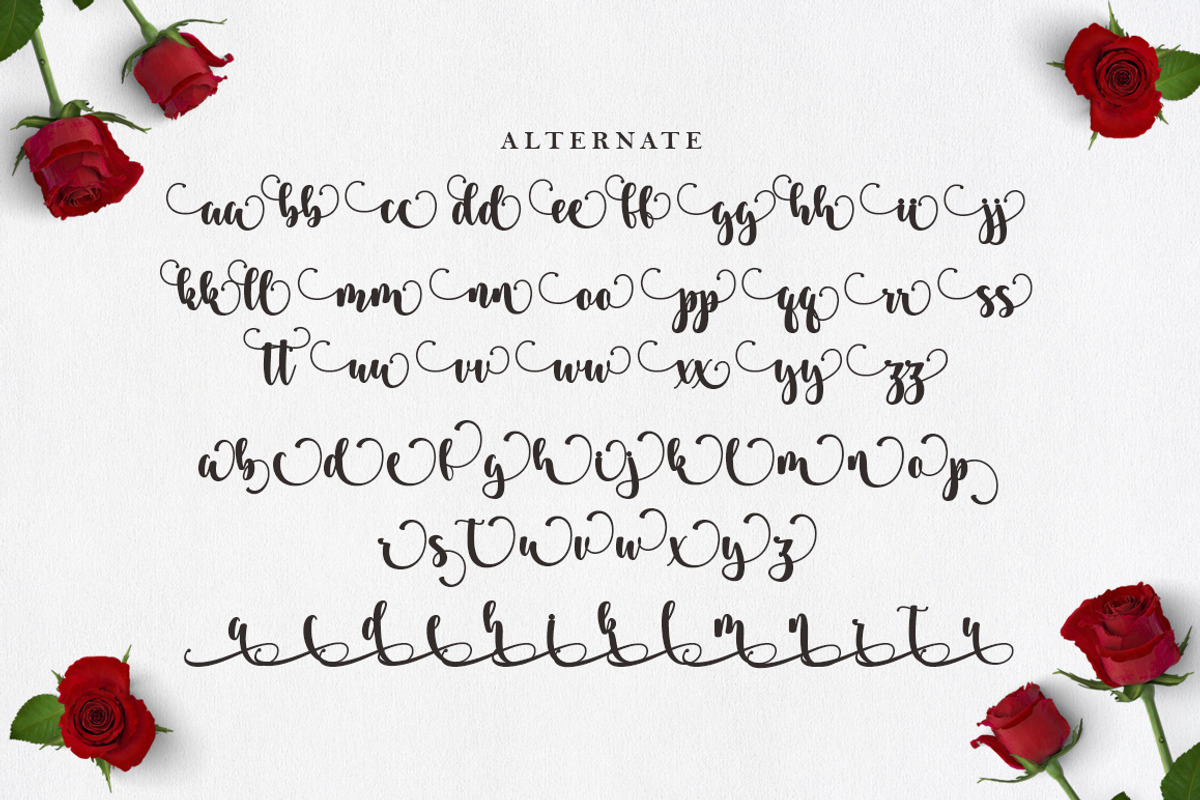 ALTERNATE
aa bb cc dd ee ff gg hh ii jj
kk ll mm nn oo pp qq rr ss
tt uu vv ww xx yy zz
a b c d e f g h i j k l m n o p
r s t u v w x y z
a c d e h i k l m n r t u